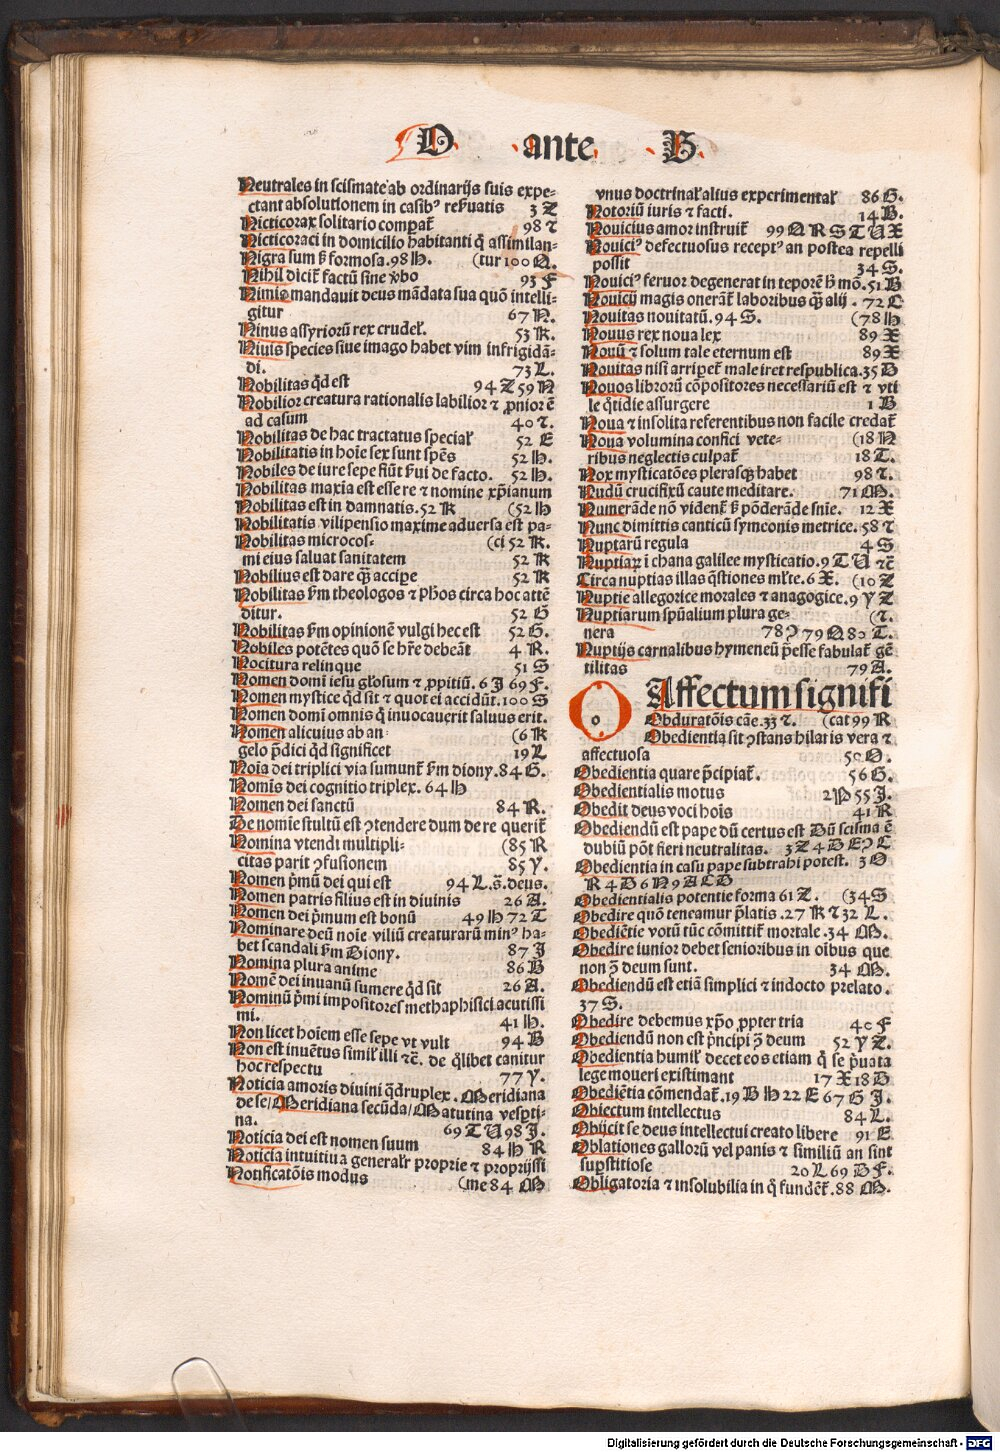 O ante B
Neutrales in scismate ab ordinarijs suis expe-
ctant absolutionem in casibꝰ reſuatis 3 Z
Nicticorax solitario comparat᷑ 98 ⁊
Nicticoraci in domicilio habitanti q̄ assimilan-
Nigra sum ſʒ formosa. 98 H. (tur 100 Q.
Nihil dicit᷑ factū sine v̾bo 93 F
Nimis mandauit deus mādata sua quō intelli-
gitur 67 N.
Ninus assyriorū rex crudel᷑. 53 K.
Niuis species siue imago habet vim infrigidā-
di. 73 L.
Nobilitas qd̄ est 94 Z 59 N
Nobilior creatura rationalis labilior ⁊ ꝓnior ē
ad casum 40 ⁊.
Nobilitas de hac tractatus special᷑ 52 E
Nobilitatis in hoīe sex sunt spēs 52 H.
Nobiles de iure sepe fiūt ſui de facto. 52 H.
Nobilitas maxīa est esse re ⁊ nomine xp̄ianum
Nobilitas est in damnatis. 52 K (52 H
Nobilitatis vilipensio maxime aduersa est pa-
Nobilitas microcos- (ci 52 K.
mi eius saluat sanitatem 52 K
Nobilius est dare qȝ accipe 52 K
Nobilitas ſm theologos ⁊ pħos circa hoc attē
ditur. 52 G
Nobilitas ſm opinionē vulgi hec est 52 G.
Nobiles potētes quō se hr̄e debeāt 4 R.
Nocitura relinque 51 S
Nomen domī iesu gl'osum ⁊ ꝓpitiū. 6 J 69 F.
Nomen mystice qd̄ sit ⁊ quot ei accidūt. 100 S
Nomen domī omnis q̄ inuocauerit saluus erit.
Nomen alicuius ab an- (6 K
gelo p̄dici qd̄ significet 19 L
Noīa dei triplici via sumunt᷑ ſm diony. 84 G.
Nomīs dei cognitio triplex. 64 H
Nomen dei sanctū 84 R.
De nomīe stultū est ꝯtendere dum de re querit᷑
Nomina vtendi multipli- (85 R
citas parit ꝯfusionem 85 Y.
Nomen p̄mū dei qui est 94 L. s̄. deus.
Nomen patris filius est in diuinis 26 A.
Nomen dei p̄mum est bonū 49 H 72 T
Nominare deū noīe viliū creaturarū minꝰ ha-
bet scandali ſm Diony. 87 J
Nomina plura anime 86 B
Nomē dei inuanū sumere qd̄ sit 26 A.
Nominū p̄mi impositores methaphisici acutissi
mi. 41 H.
Non licet hoīem esse sepe vt vult 94 B
Non est inuētus simil᷑ illi ⁊c̄. de q̄libet canitur
hoc respectu 77 Y.
Noticia amoris diuini qd̄ruplex. Meridiana
de se/Meridiana secūda/Matutina vesꝑti-
na. 69 T U 98 J.
Noticia dei est nomen suum 84 H R
Noticia intuitiua general᷑r proprie ⁊ proprijssi
Notificatōis modus (me 84 M
vnus doctrinal᷑ alius experimental᷑ 86 G.
Notoriū iuris ⁊ facti. 14 B.
Nouicius amor instruit᷑ 99 Q R S T U X
Nouiciꝰ defectuosus receptꝰ an postea repelli
possit 34 S.
Nouiciꝰ feruor degenerat in teporē hʒ mō. 51 B
Nouicij magis onerāt᷑ laboribus qȝ alij. 72 C
Nouitas nouitatū. 94 S. (78 H
Nouus rex noua lex 89 X
Nouū ⁊ solum tale eternum est 89 X
Nouitas nisi arripet᷑ male iret respublica. 35 D
Nouos librorū cōpositores necessariū est ⁊ vti
le q̄tidie assurgere 1 B
Noua ⁊ insolita referentibus non facile credat᷑
Noua volumina confici vete- (18 N
ribus neglectis culpat᷑ 18 T.
Nox mysticatōes plerasqȝ habet 98 ⁊.
Nudū crucifixū caute meditare. 71 M.
Numerāde nō vident᷑ ſʒ pōderāde sn̄ie. 12 X
Nunc dimittis canticū symeonis metrice. 58 ⁊
Nuptarū regula 4 S
Nuptiaꝝ ī chana galilee mysticatio. 9 T U ⁊c̄
Circa nuptias illas q̄stiones ml̄te. 6 X. (10 Z
Nuptie allegorice morales ⁊ anagogice. 9 Y Z
Nuptiarum spūalium plura ge- (⁊.
nera 78 ꝯ 79 Q 80 T.
Nuptijs carnalibus hymeneū p̄esse fabulat᷑ gē
tilitas 79 A.
O Affectum signifi
Obduratōis cāe. 33 ⁊. (cat 99 R
Obedientia sit ꝯstans hilaris vera ⁊
affectuosa 50 O.
Obedientia quare p̄cipiat᷑. 56 G.
Obedientialis motus 2 P 55 J.
Obedit deus voci hoīs 41 R
Obediendū est pape dū certus est Dū scisma ē
dubiū pōt fieri neutralitas. 3 Z 4 D E ꝯ C
Obedientia in casu pape subtrahi potest. 3 O
R 4 D 6 N 9 A C D
Obedientialis potentie forma 61 Z. (34 S
Obedire quō teneamur p̄latis. 27 K ⁊ 32 L.
Obediētie votū tūc cōmittit᷑ mortale. 34 M.
Obedire iunior debet senioribus in oībus que
non ꝯ̄ deum sunt. 34 M.
Obediendū est etiā simplici ⁊ indocto prelato.
37 S.
Obedire debemus xp̄o ꝓpter tria 40 F
Obediendū non est p̄ncipi ꝯ̄ deum 52 Y Z.
Obedientia humil᷑ decet eos etiam q̄ se p̄uata
lege moueri existimant 17 X 18 D
Obediētia cōmendat᷑. 19 B H 22 E 67 G J.
Obiectum intellectus 84 L.
Obijcit se deus intellectui creato libere 91 E
Oblationes gallorū vel panis ⁊ similiū an sint
suꝑstitiose 20 L 69 D F.
Obligatoria ⁊ insolubilia in q̄ fundēt᷑. 88 M.
Digitalisierung gefördert durch die Deutsche Forschungsgemeinschaft - DFG